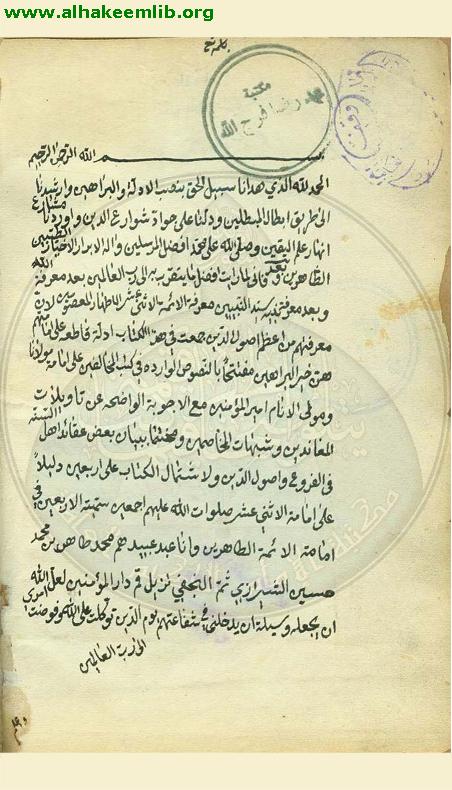 www.alhakeemlib.org
مكتبة
محمد رضا فرج الله
بسم الله الرحمن الرحيم
الحمد لله الذي هدانا سبيل الحق بنصب الادلة والبراهين وارشدنا
الى طريق ابطال المبطلين ودلنا على جواد شوارع الدين واوردنا مشارع
انهار علم اليقين وصلى الله على محمد افضل المرسلين واله الابرار الاخيار الطيبين
الطاهرين وبعد فاني لما رايت افضل ما يتقرب به الى رب العالمين بعد معرفة الله
وبعد معرفة نبيه سيد النبيين معرفة الائمة الاثني عشر الاطهار المعصومين لان
معرفتهم من اعظم اصول الدين جمعت في هذا الكتاب ادلة قاطعة على امامتهم
هي خير البراهين مفتتحا بالنصوص الواردة في كتب المخالفين على امامة مولانا
ومولى الانام امير المؤمنين مع الاجوبة الواضحة عن تاويلات
المعاندين وشبهات المخاصمين وختمتها ببيان بعض عقائد اهل السنة
في الفروع واصول الدين ولاشتمال الكتاب على اربعين دليلاً
على امامة الاثني عشر صلوات الله عليهم اجمعين سميته الاربعين في
امامة الائمة الطاهرين وانا عبد عبيدهم محمد طاهر بن محمد
حسين الشيرازي ثم النجفي نزيل قم دار المؤمنين لعل الله
ان يجعله وسيلة ان يدخلني في شفاعتهم يوم الدين توكلت على الله وفوضت امري
الى رب العالمين